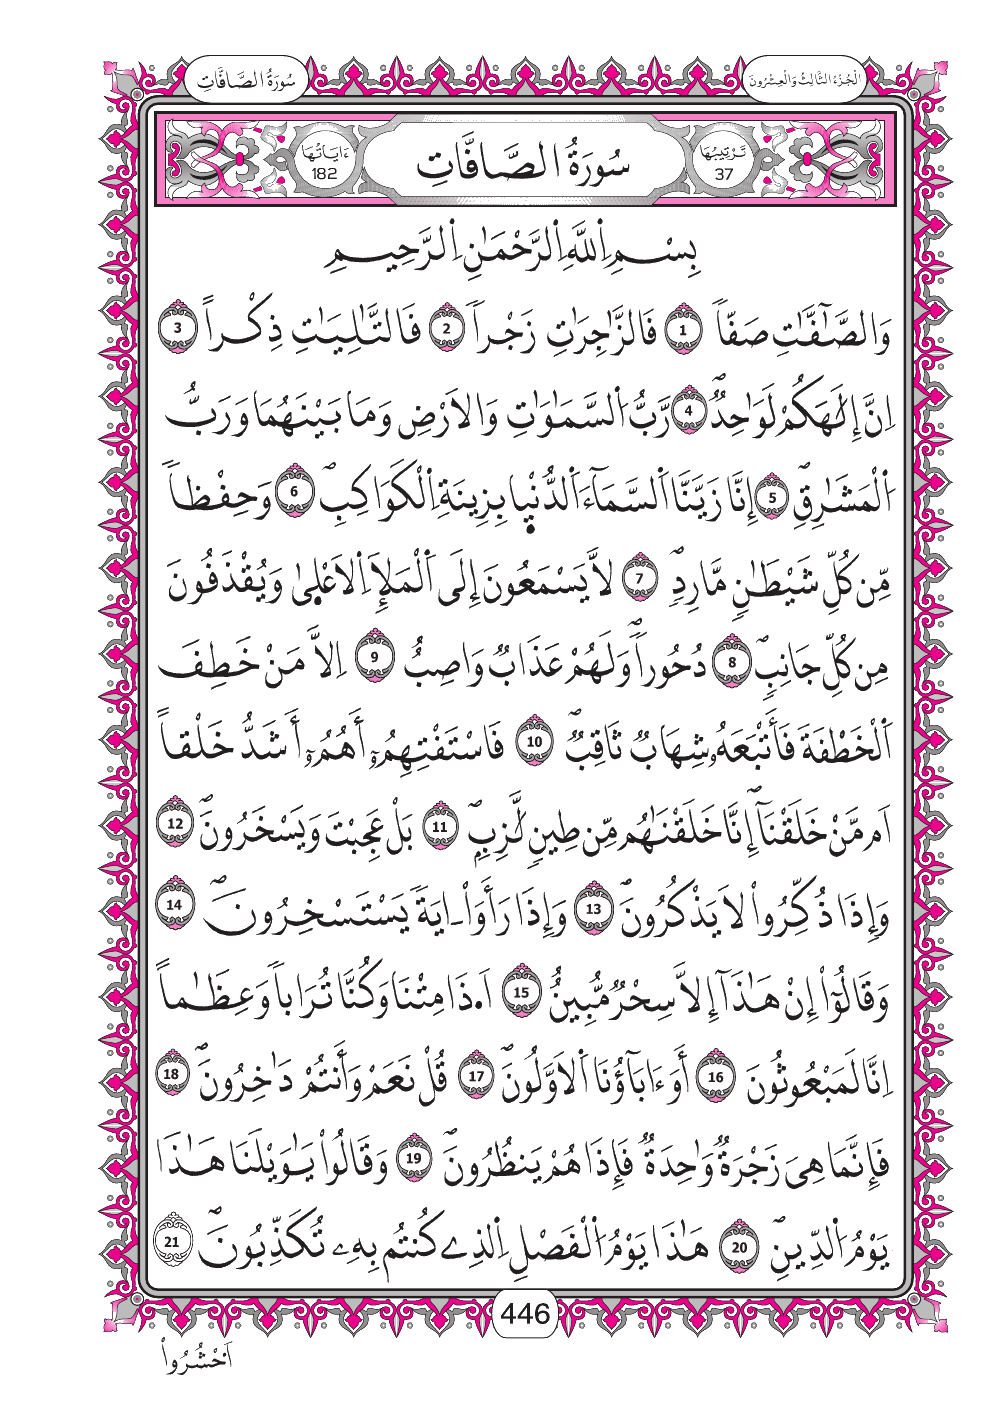 سُورَةُ الصَّافَّاتِ
الْجُزْءُ الثَّالِثُ وَالْعِشْرُونَ
تَرْتِيبُهَا 37
سُورَةُ الصَّافَّاتِ
ءَايَاتُهَا 182
بِسْمِ اِللَّهِ اِلرَّحْمَٰنِ اِلرَّحِيمِ
وَالصَّٰٓفَّٰتِ صَفّاٗ 1 فَالزَّٰجِرَٰتِ زَجْراٗ 2 فَالتَّٰلِيَٰتِ ذِكْراً 3
اِنَّ إِلَٰهَكُمْ لَوَٰحِدٞ 4 رَّبُّ اُلسَّمَٰوَٰتِ وَالَارْضِ وَمَا بَيْنَهُمَا وَرَبُّ
اُلْمَشَٰرِقِ 5 إِنَّا زَيَّنَّا اَلسَّمَآءَ اَلدُّنْي۪ا بِزِينَةِ اِلْكَوَاكِبِ 6 وَحِفْظاٗ
مِّن كُلِّ شَيْطَٰنٖ مَّارِدٖ 7 لَّا يَسْمَعُونَ إِلَى اَلْمَلَإِ اِلَاعْل۪يٰ وَيُقْذَفُونَ
مِن كُلِّ جَانِبٖ 8 دُحُوراٗ وَلَهُمْ عَذَابٞ وَاصِبٌ 9 اِلَّا مَنْ خَطِفَ
اَلْخَطْفَةَ فَأَتْبَعَهُۥ شِهَابٞ ثَاقِبٞ 10 فَاسْتَفْتِهِمُۥٓ أَهُمُۥٓ أَشَدُّ خَلْقاً
اَم مَّنْ خَلَقْنَآ إِنَّا خَلَقْنَٰهُم مِّن طِينٖ لَّٰزِبِۢ 11 بَلْ عَجِبْتَ وَيَسْخَرُونَ 12
وَإِذَا ذُكِّرُواْ لَا يَذْكُرُونَ 13 وَإِذَا رَأَوَاْ ايَةٗ يَسْتَسْخِرُونَ 14
وَقَالُوٓاْ إِنْ هَٰذَآ إِلَّا سِحْرٞ مُّبِينٌ 15 اَ۟ذَا مِتْنَا وَكُنَّا تُرَاباٗ وَعِظَٰماً
اِنَّا لَمَبْعُوثُونَ 16 أَوَءَابَآؤُنَا اَلَاوَّلُونَ 17 قُلْ نَعَمْ وَأَنتُمْ دَٰخِرُونَ 18
فَإِنَّمَا هِيَ زَجْرَةٞ وَٰحِدَةٞ فَإِذَا هُمْ يَنظُرُونَ 19 وَقَالُواْ يَٰوَيْلَنَا هَٰذَا
يَوْمُ اُلدِّينِ 20 هَٰذَا يَوْمُ اُلْفَصْلِ اِلذِے كُنتُم بِهِۦ تُكَذِّبُونَ 21
446
اَ۟حْشُرُواْ